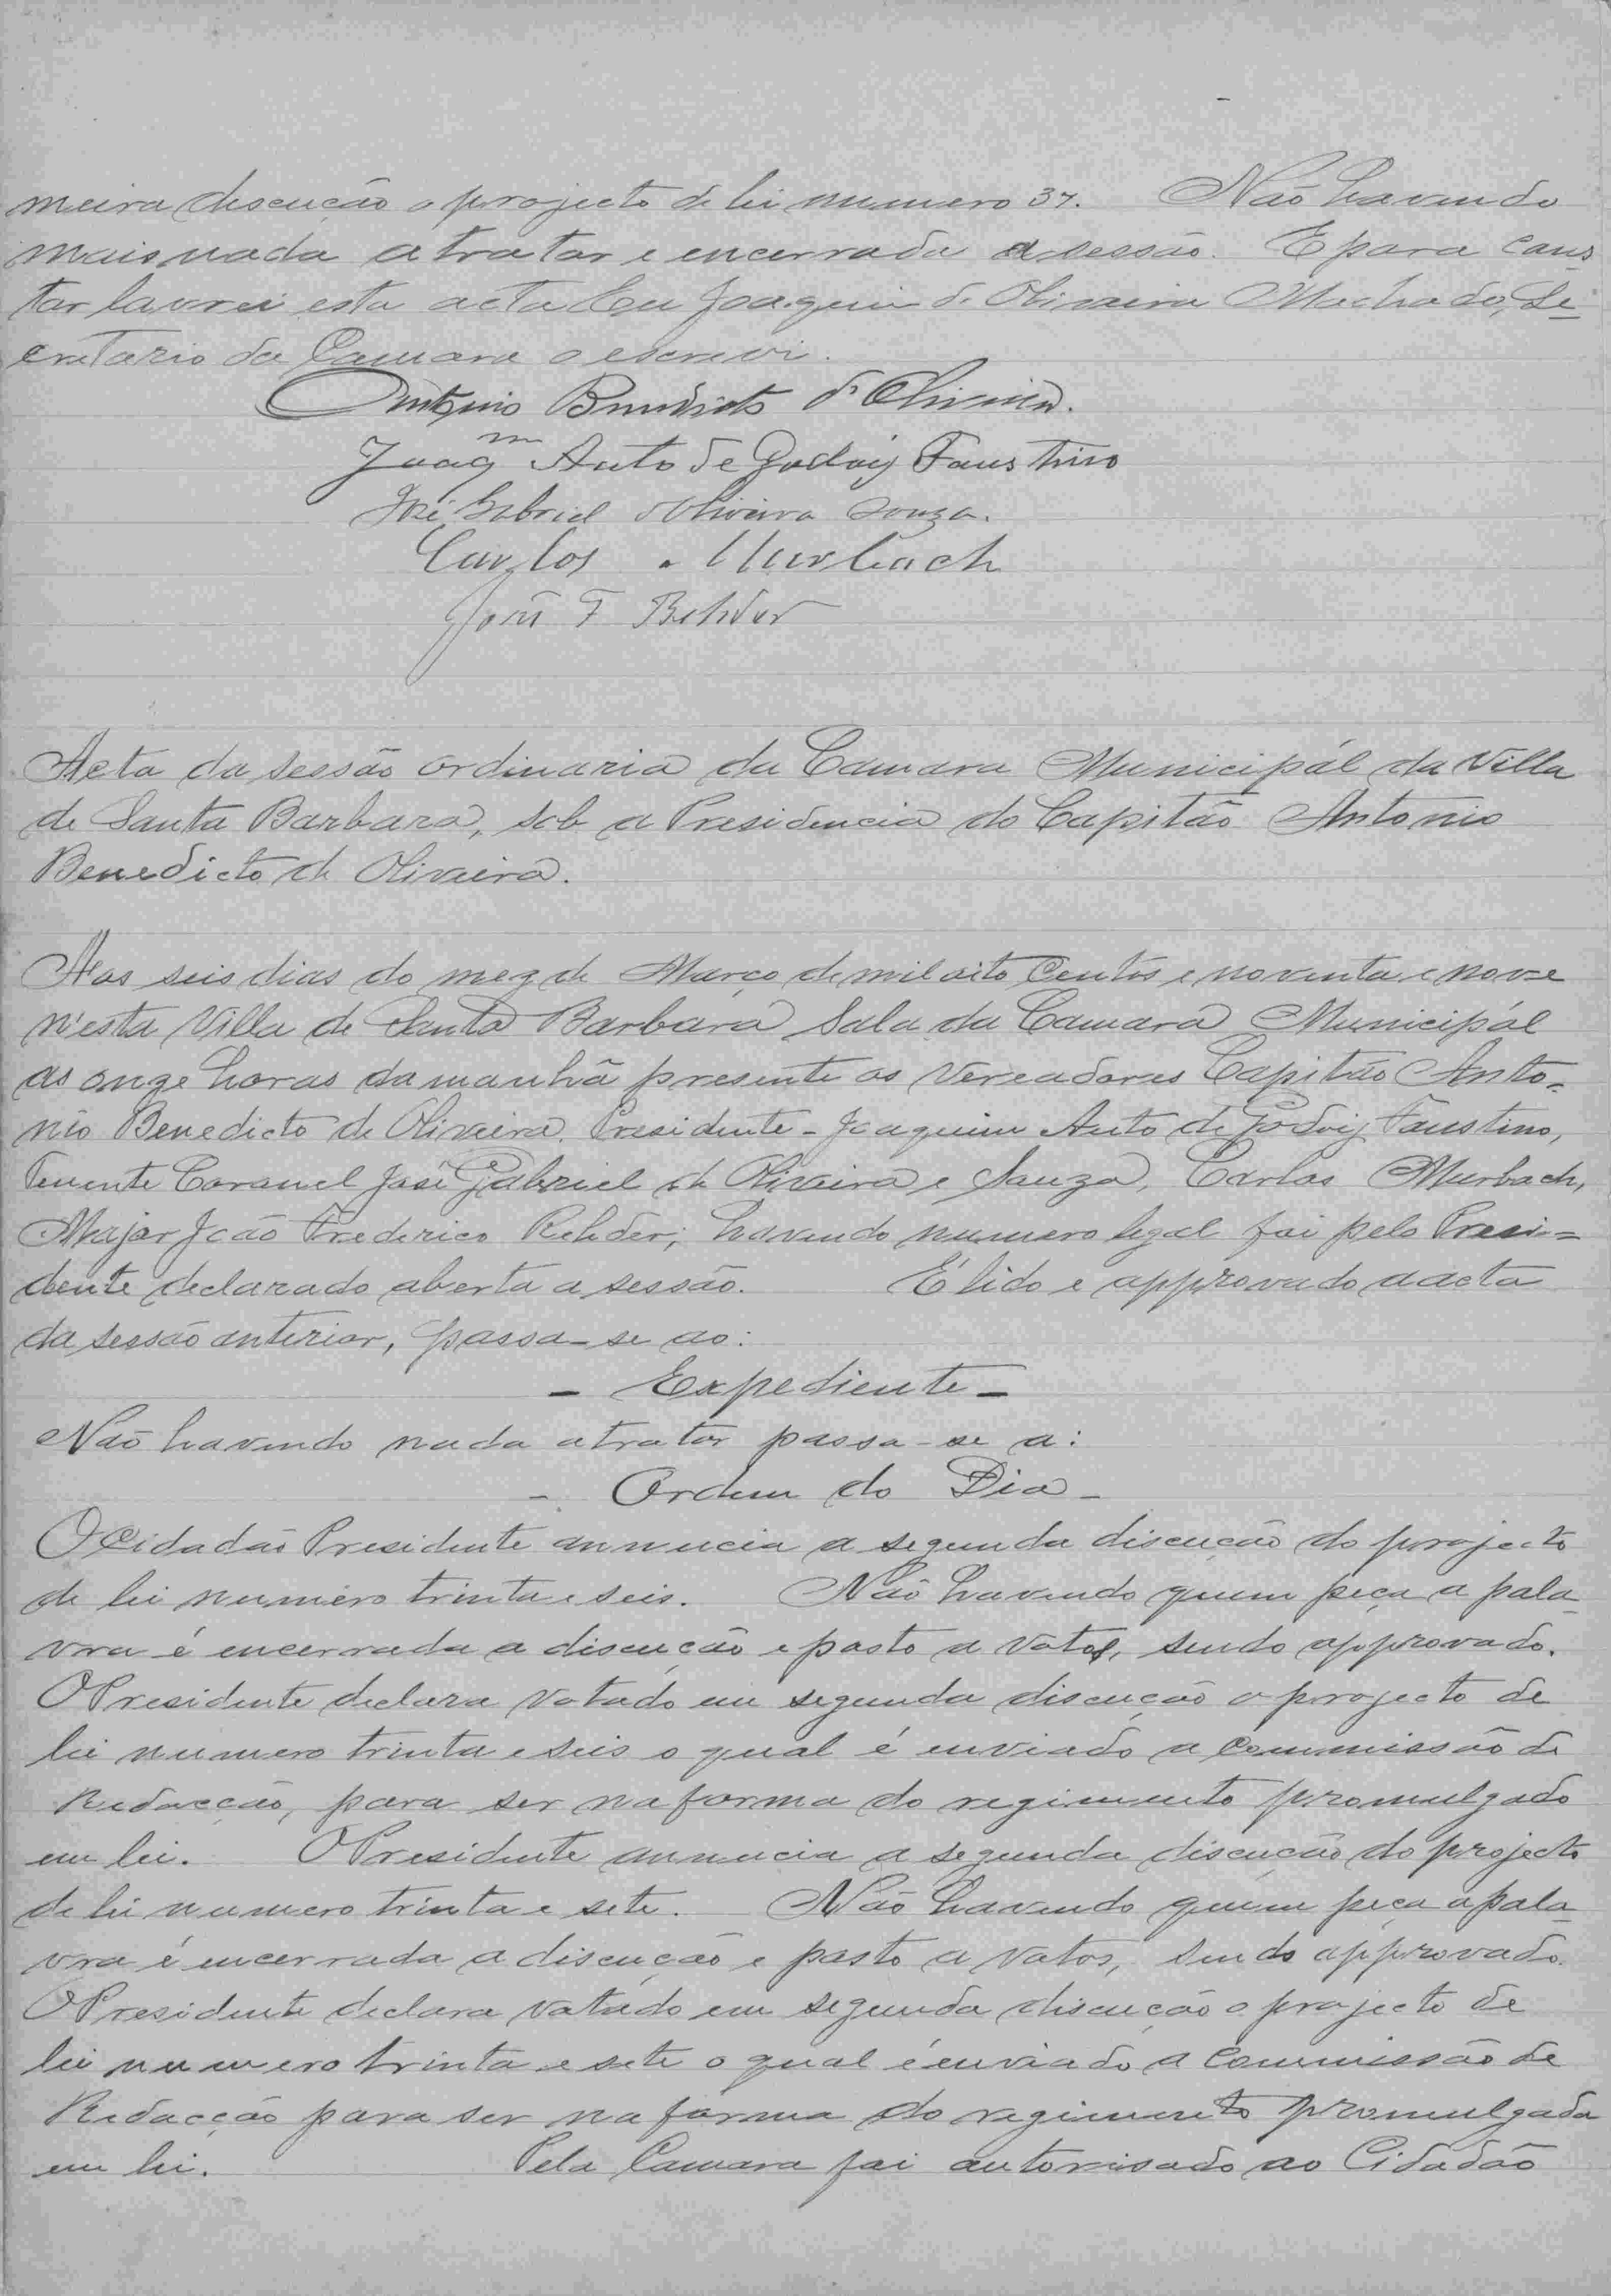 meira discução o projecto de lei numero 37. Não havendo
mais nada a tratar e encerrada a sessão. E para cons
tar lavrei esta acta Eu Joaquim de Oliveira Machado, Se-
cretario da Camara o escrevi.
Antonio Benedicto d'Oliveira.
Joaqm Auto de Godoy Faustino
José Gabriel d'Oliveira Souza.
Carlos Murbach
João F Rehder
Acta da sessão ordinaria da Camara Municipál da Villa
de Santa Barbara, sob a Presidencia do Capitão Antonio
Benedicto de Oliveira.
Aos seis dias do mez de Março de mil oito Centos e noventa e nove
n'esta Villa de Santa Barbara Sala da Camara Municipál
as onze horas da manhã presente os Vereadores Capitão Anto-
nio Benedicto de Oliveira, Presidente - Joaquim Auto de Godoy Faustino,
Tenente Coronel José Gabriel de Oliveira e Souza, Carlos Murbach,
Major João Frederico Rehder; havendo numero legal foi pelo Presi=
dente declarado aberta a sessão. É lido e approvado a acta
da sessão anterior, passa-se ao:
- Expediente -
Não havendo nada a tratar passa-se a:
- Ordem do Dia -
O Cidadão Presidente annuncia a segunda discução do projecto
de lei numero trinta e seis. Não havendo quem peça a pala
vra é encerrada a discução e posto a votos, sendo approvado.
O Presidente declara votado em segunda discução o projecto de
lei numero trinta e seis o qual é enviado a Commissão de
Redacção, para ser na forma do regimento promulgado
em lei. O Presidente annuncia a segunda discução do projecto
de lei numero trinta e sete. Não havendo quem peça a pala
vra é encerrada a discução e posto a votos, sendo approvado.
O Presidente declara votado em segunda discução o projecto de
lei numero trinta e sete o qual é enviado a Commissão de
Redacção para ser na forma do regimento promulgada
em lei. Pela Camara foi autorisado ao Cidadão